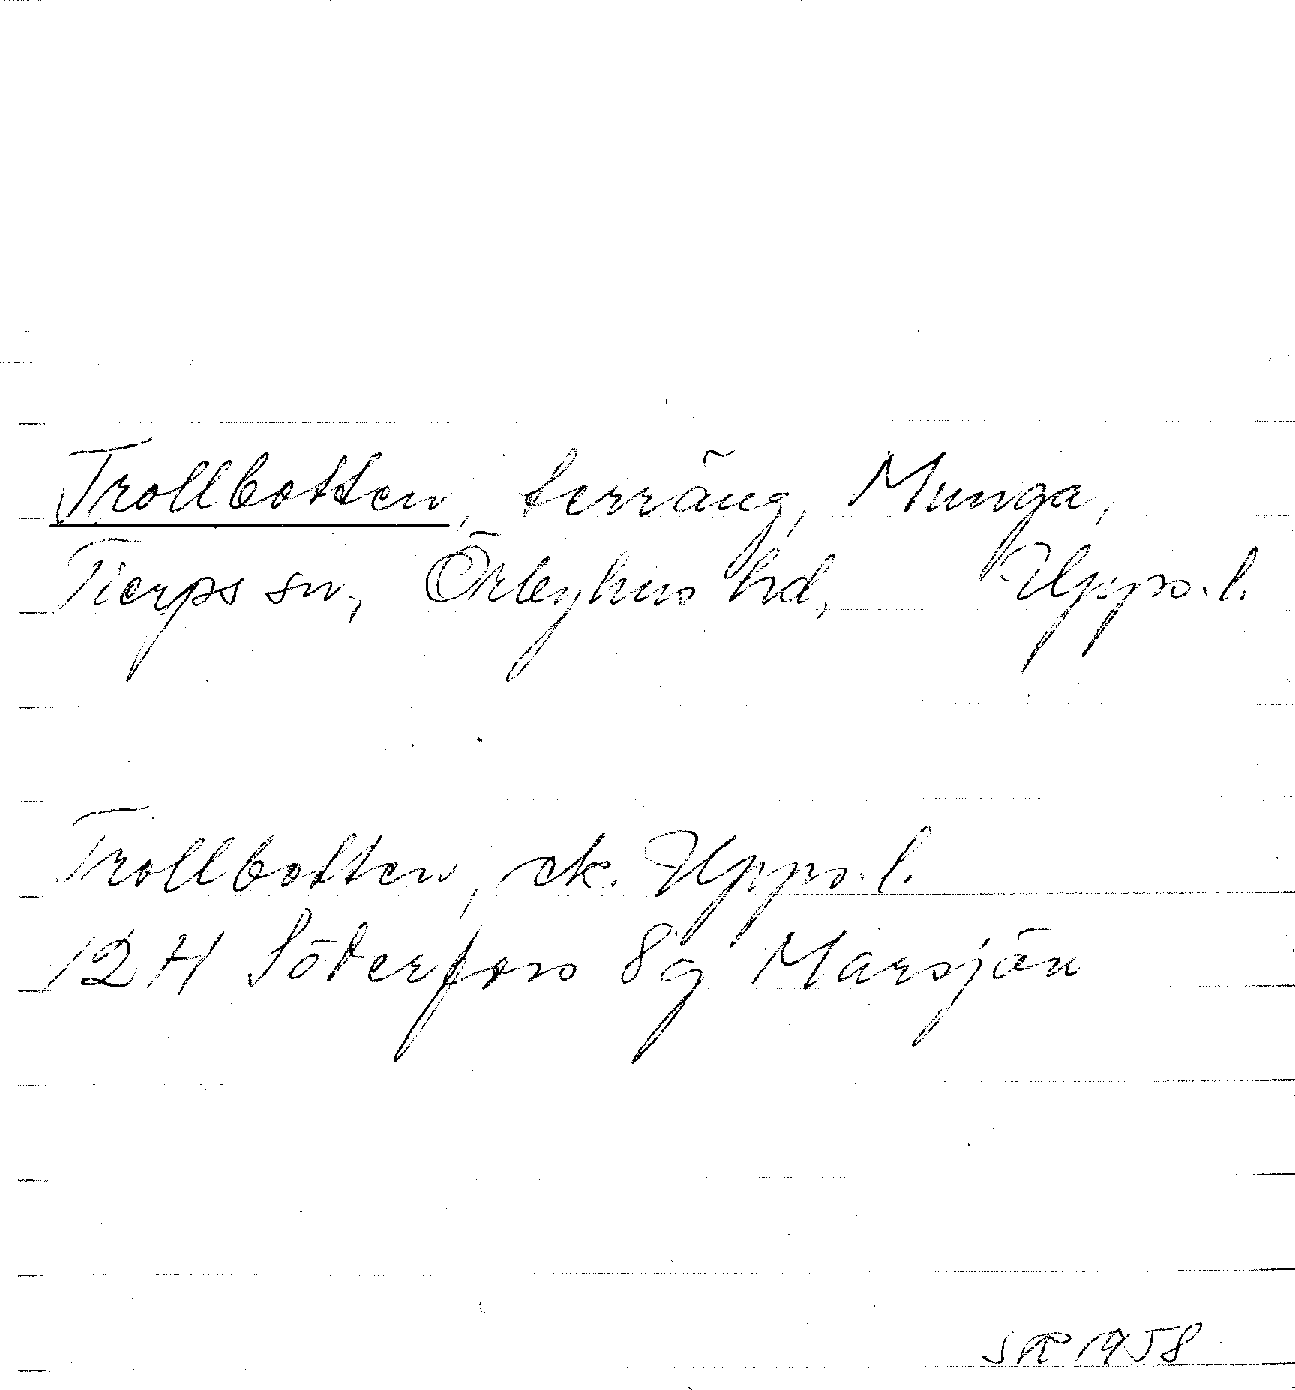 Trollbotten, terräng, Munga,
Tierps sn, Örbyhus hd, Upps. l.
Trollbotten, ek. Upps. l.
12 H Söderfors 8g Marsjön
SR 1958